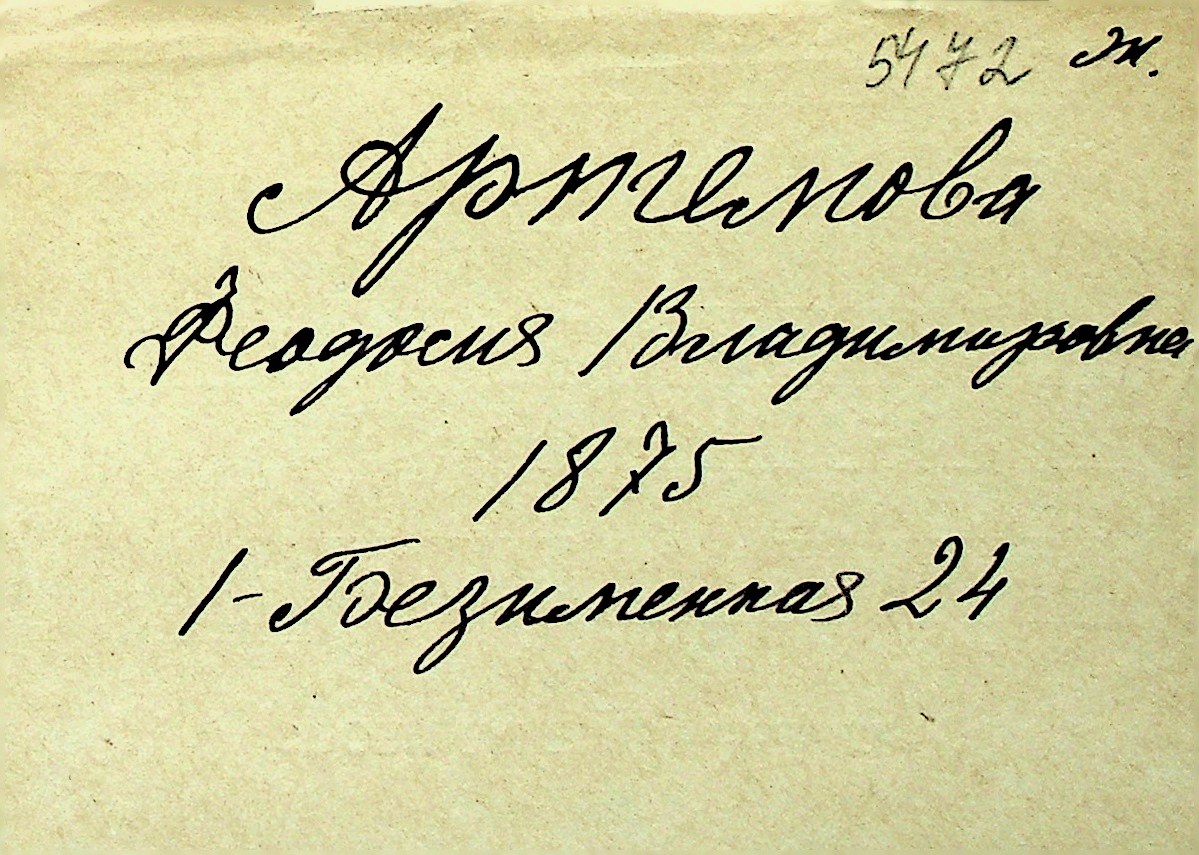 5472 ж.
Артемова
Феодосия Владимировна
1875
1-Безименная 24